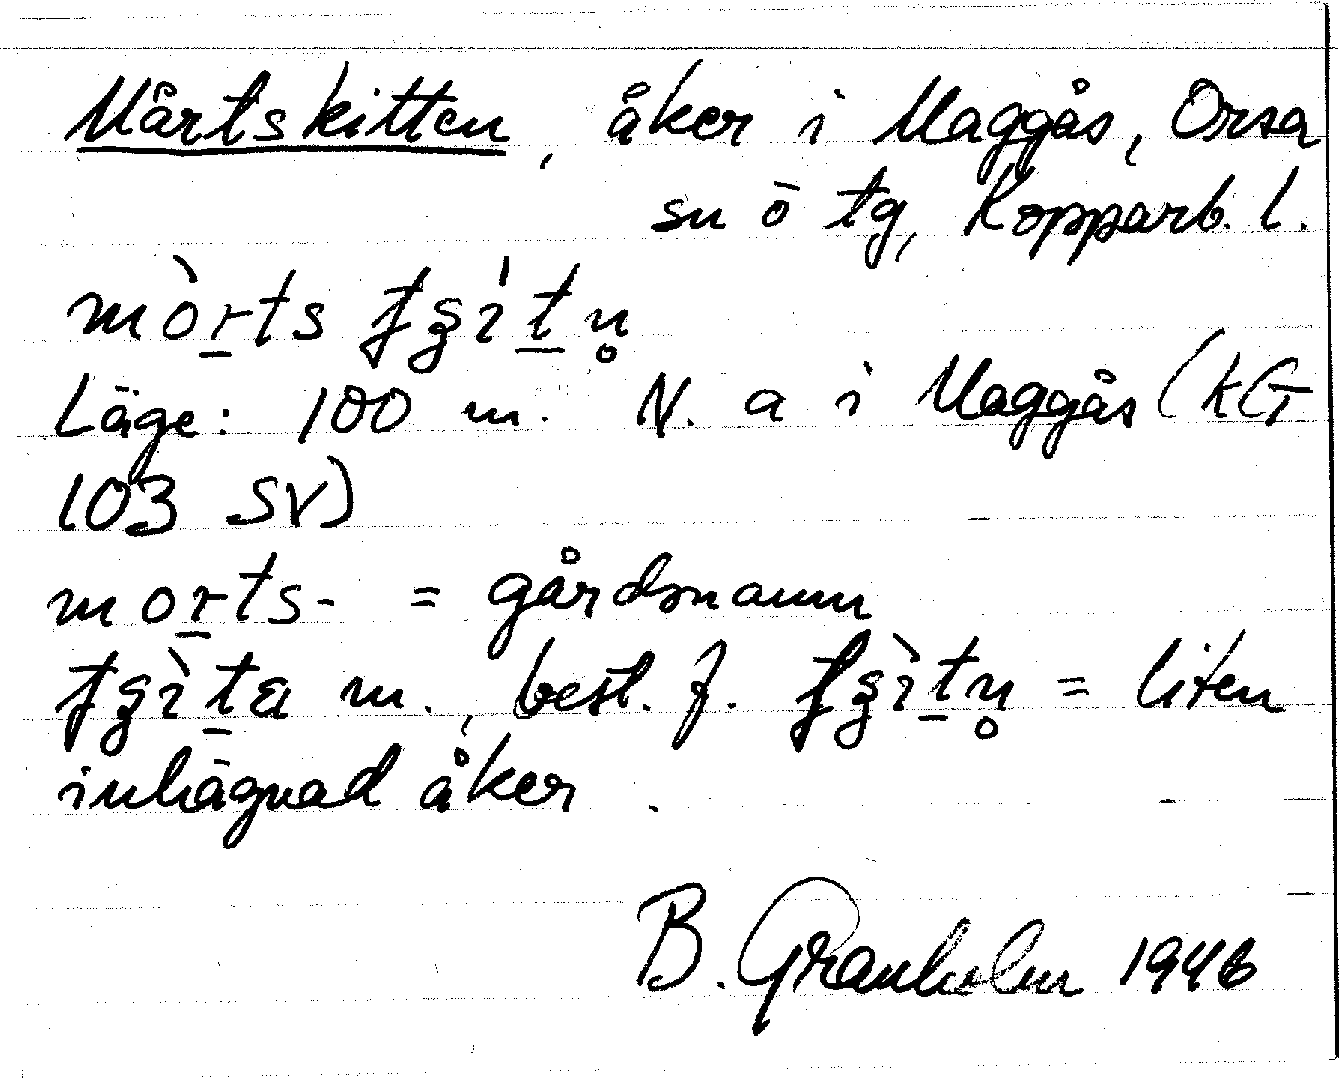 Mårtskitten, åker i Maggås, Orsa
sn ō tg, Kopparb. l.
mòr̲ts ʄʂı̍t̲n̥
Läge: 100 m. N. a i Maggås (KG
103 SV)
mor̲ts- = gårdsnamn
ʄʂìt̲a m., best. f. ʄʂìt̲n̥ = liten
inhägnad åker.
B. Granholm 1946